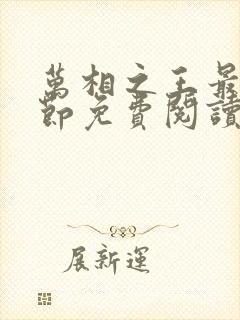 萬相之王最
節免費閱讀
展新運